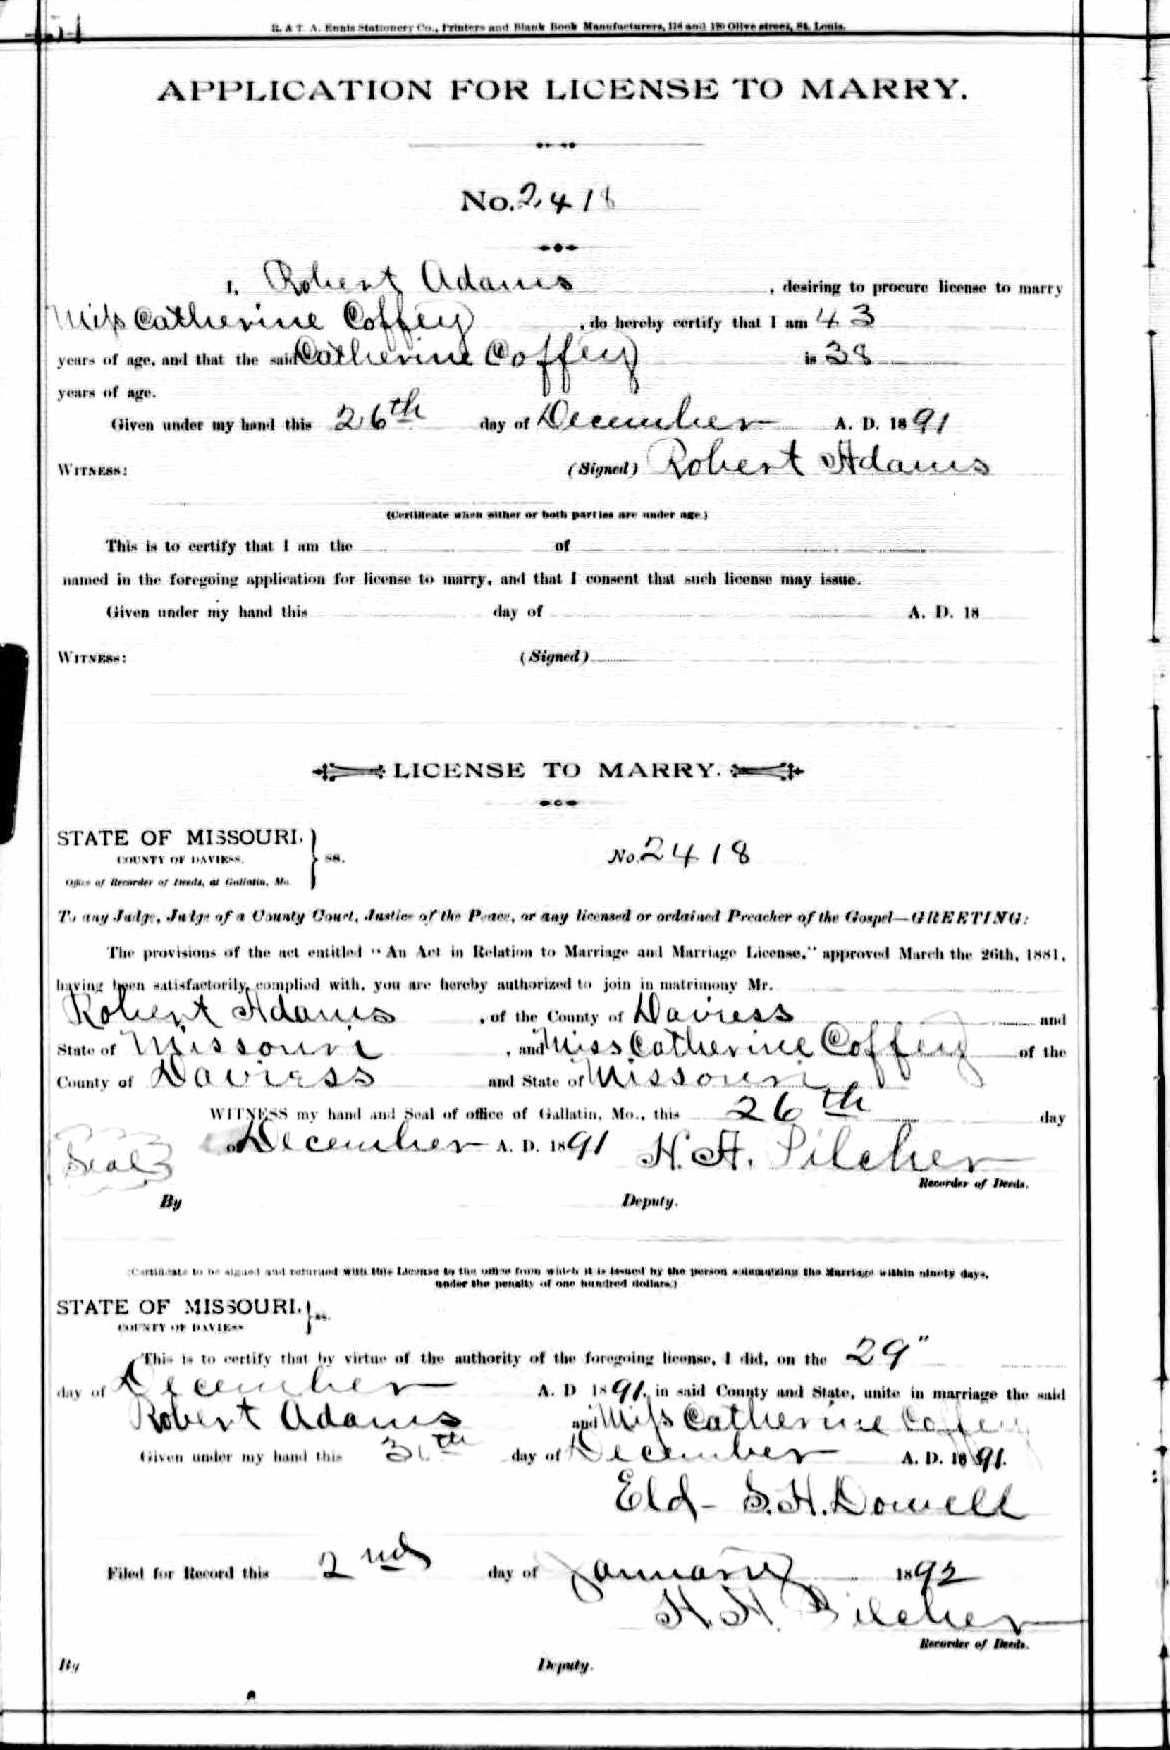 R. & T. A. Ennis Stationery Co., Printers and Blank Book Manufacturers, 118 and 120 Olive street, St. Louis.
APPLICATION FOR LICENSE TO MARRY.
No. 2418
I, Robert Adams, desiring to procure license to marry
Miss Catherine Coffey, do hereby certify that I am 43
years of age, and that the said Catherine Coffey is 38
years of age.
Given under my hand this 26th day of December A. D. 1891
WITNESS: (Signed) Robert Adams
(Certificate when either or both parties are under age.)
This is to certify that I am the of
named in the foregoing application for license to marry, and that I consent that such license may issue.
Given under my hand this day of A. D. 18
WITNESS: (Signed)
LICENSE TO MARRY.
STATE OF MISSOURI, } ss. No. 2418
COUNTY OF DAVIESS.
Office of Recorder of Deeds, at Gallatin, Mo.
To any Judge, Judge of a County Court, Justice of the Peace, or any licensed or ordained Preacher of the Gospel—GREETING:
The provisions of the act entitled "An Act in Relation to Marriage and Marriage License," approved March the 26th, 1881,
having been satisfactorily complied with, you are hereby authorized to join in matrimony Mr.
Robert Adams, of the County of Daviess and
State of Missouri, and Miss Catherine Coffey of the
County of Daviess and State of Missouri
WITNESS my hand and Seal of office of Gallatin, Mo., this 26th day
of December A. D. 1891 H. H. Pilcher
Seal
Recorder of Deeds.
By Deputy.
(Certificate to be signed and returned with this License to the office from which it is issued by the person solemnizing the Marriage within ninety days,
under the penalty of one hundred dollars.)
STATE OF MISSOURI, } ss.
COUNTY OF DAVIESS
This is to certify that by virtue of the authority of the foregoing license, I did, on the 29"
day of December A. D 1891, in said County and State, unite in marriage the said
Robert Adams and Miss Catherine Coffey
Given under my hand this 31th day of December A. D. 1891.
Eld- S. H. Dowell
Filed for Record this 2nd day of January 1892
H. H. Pilcher
Recorder of Deeds.
By Deputy.